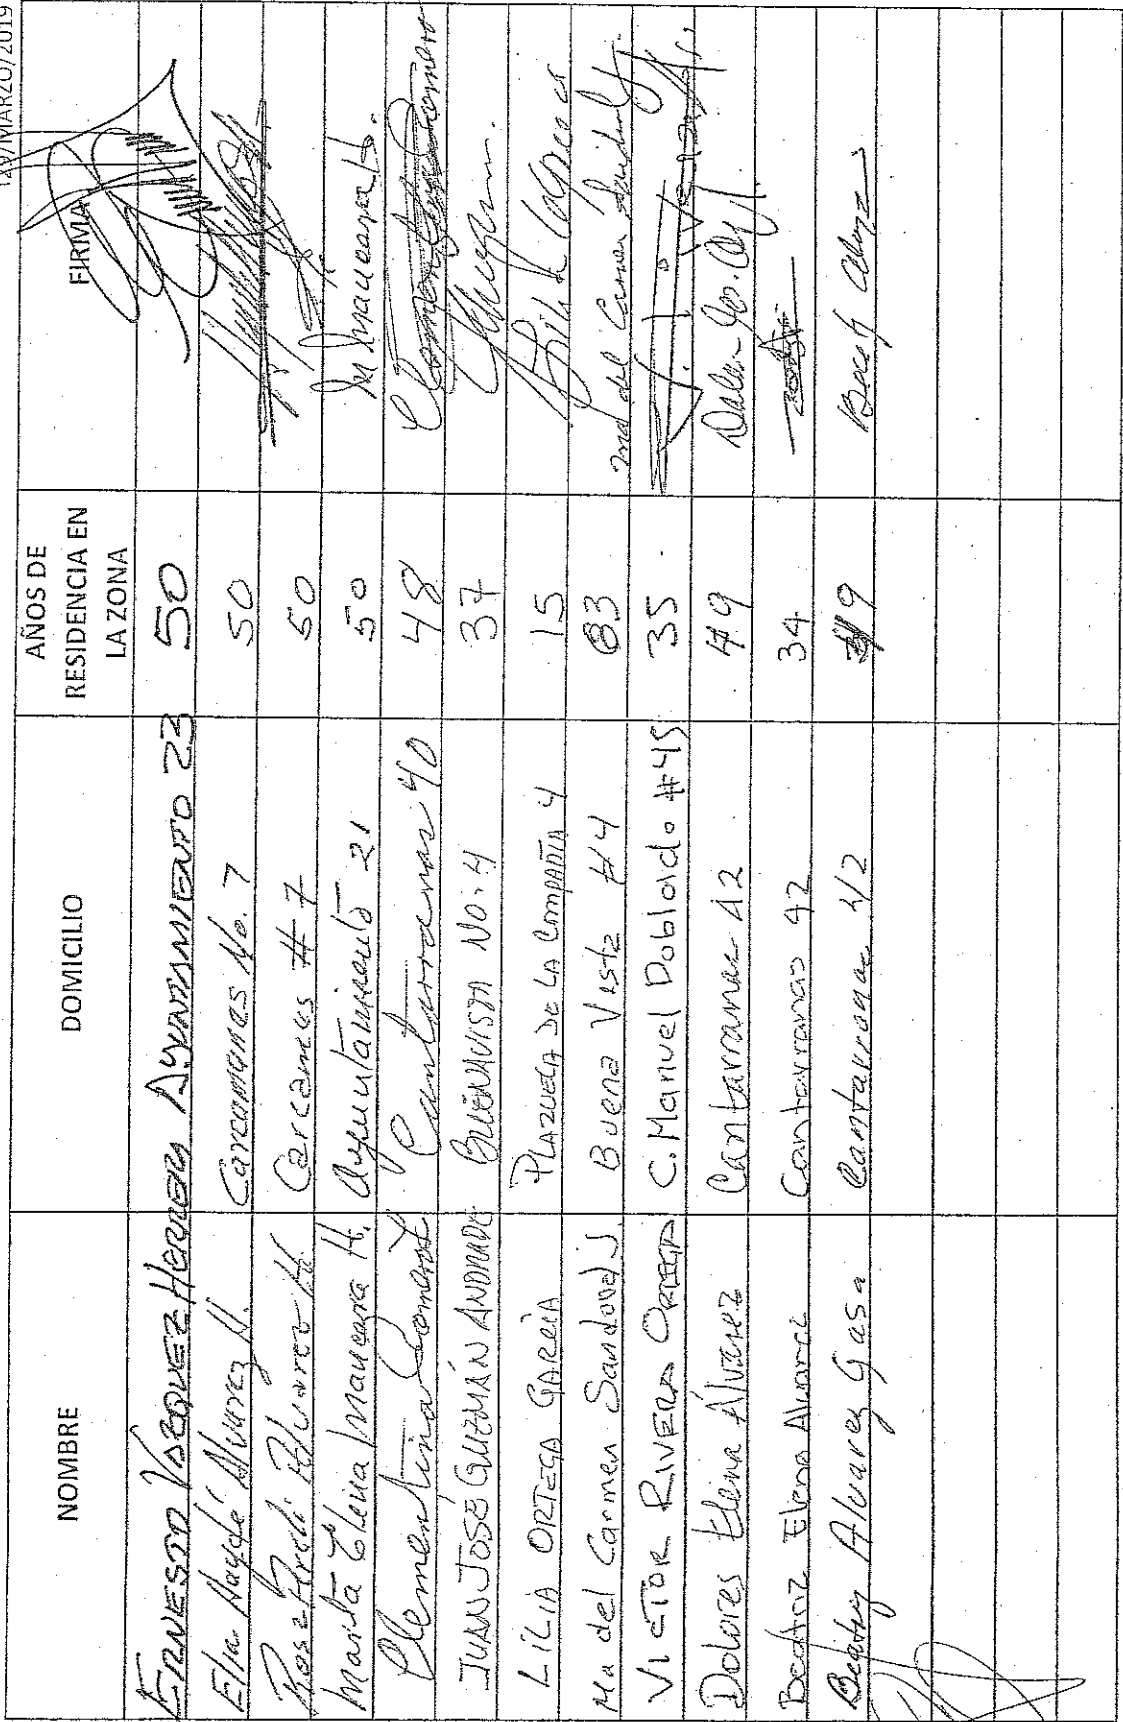 /MARZO/2019
NOMBRE DOMICILIO AÑOS DE RESIDENCIA EN LA ZONA FIRMA
ERNESTO VAZQUEZ HERRERA AYUNTAMIENTO 23 50
Elia Haydé Alvarez H. Carcamanes No. 7 50
Rosa Areli Alvarez H. Carcamanes # 7 50
María Elena Mancera H. Ayuntamiento 21 50 M Mancera H.
Clementina Romero Cantarranas 40 48 Clementina Romero
JUAN JOSÉ GUZMÁN ANDRADE BUENAVISTA NO. 4 37
LILIA ORTEGA GARCÍA PLAZUELA DE LA COMPAÑÍA 4 15
Ma del Carmen Sandoval J. Buena Vista #4 83 Ma del Carmen
VICTOR RIVERA ORTEGA C. Manuel Doblado #45 35
Dolores Elena Álvarez Cantarranas 42 49
Beatriz Elena Alvarez Cantarranas 42 34
Beatriz Alvarez Gasa Cantarranas 42 49